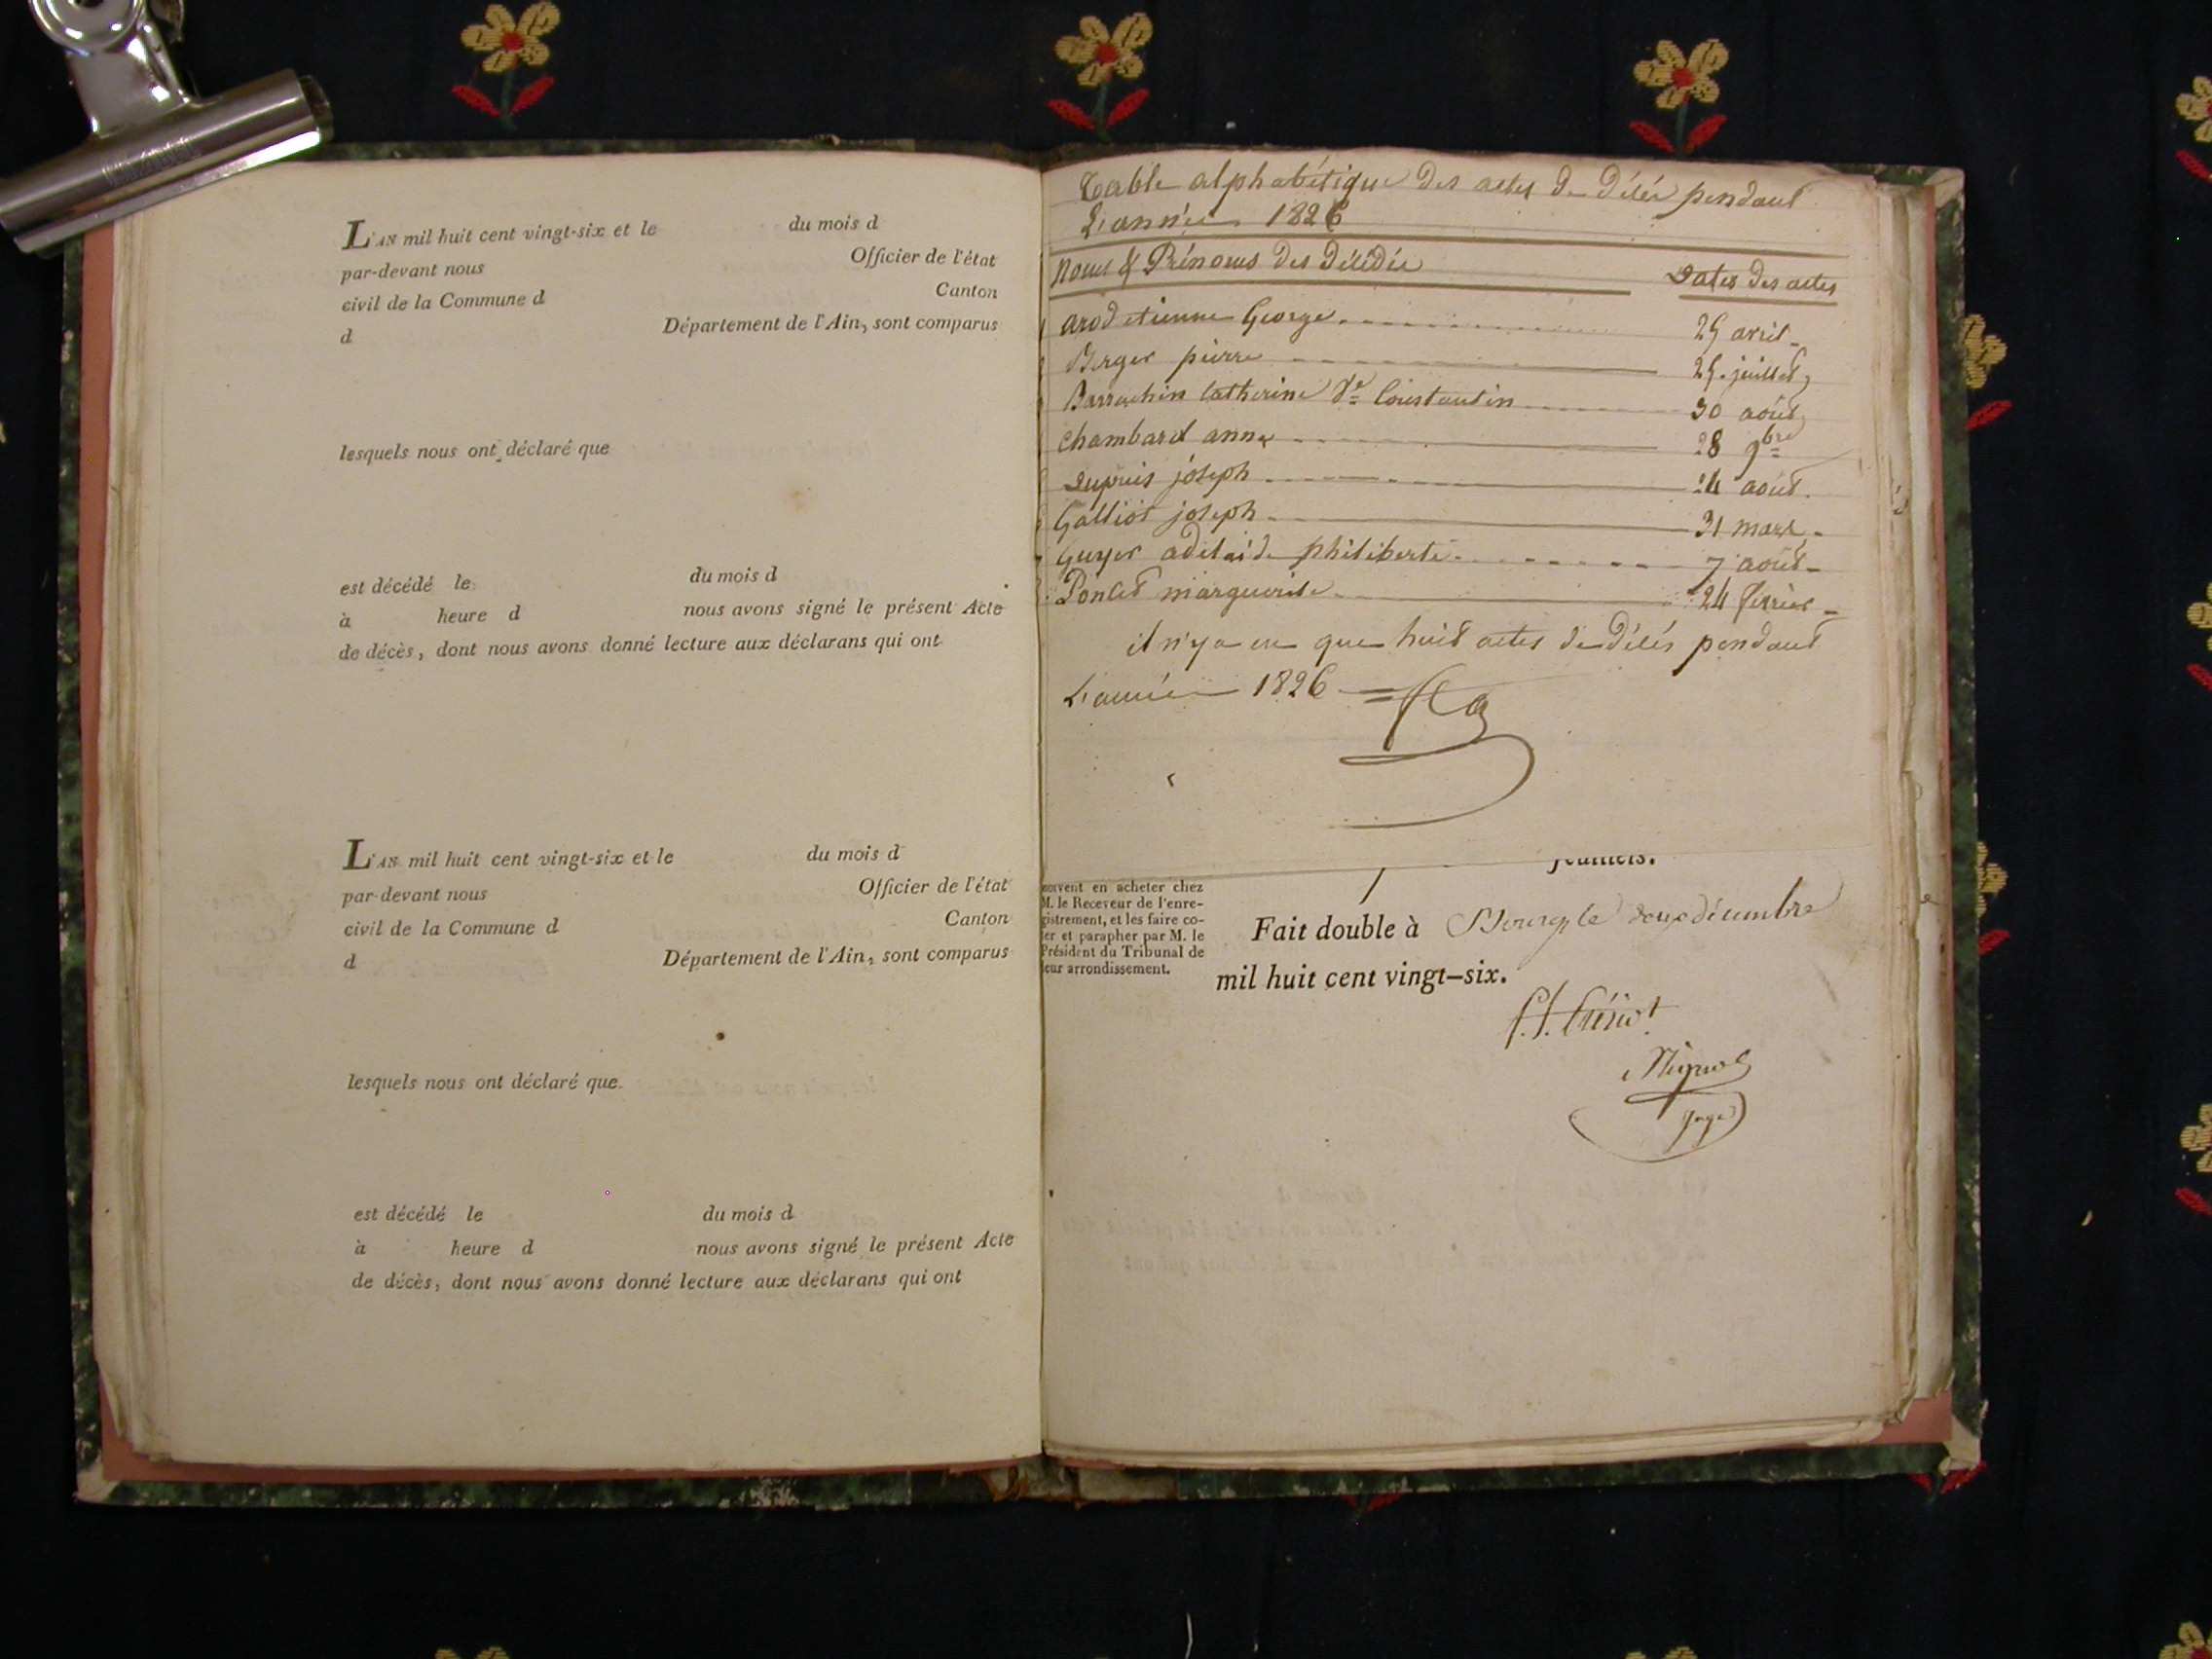 L'AN mil huit cent vingt-six et le du mois d
par-devant nous Officier de l'état
civil de la Commune d Canton
d Département de l'Ain, sont comparus
lesquels nous ont déclaré que
est décédé le du mois d
à heure d nous avons signé le présent Acte
de décès, dont nous avons donné lecture aux déclarans qui ont
L'AN mil huit cent vingt-six et le du mois d
par-devant nous Officier de l'état
civil de la Commune d Canton
d Département de l'Ain, sont comparus
lesquels nous ont déclaré que
est décédé le du mois d
à heure d nous avons signé le présent Acte
de décès, dont nous avons donné lecture aux déclarans qui ont
Table alphabétique des actes de décés pendant
L'année 1826
Noms & Prénoms des décédés Dates des actes
arod etienne George 25 avril
Berger pierre 25 juillet
Barrachin Catherine Ve Constantin 30 août
Chambard anne 28 9bre
Dupuis joseph 24 août
Galliot joseph 31 mars
Guyer adélaïde philiberte 7 août
Poncet marguerite 24 février
il n'y a eu que huit actes de décés pendant
L'année 1826
feuillets.
euvent en acheter chez
M. le Receveur de l'enre-
gistrement, et les faire co-
er et parapher par M. le
Président du Tribunal de
leur arrondissement.
Fait double à Bourg le décembre
mil huit cent vingt-six.
Juge